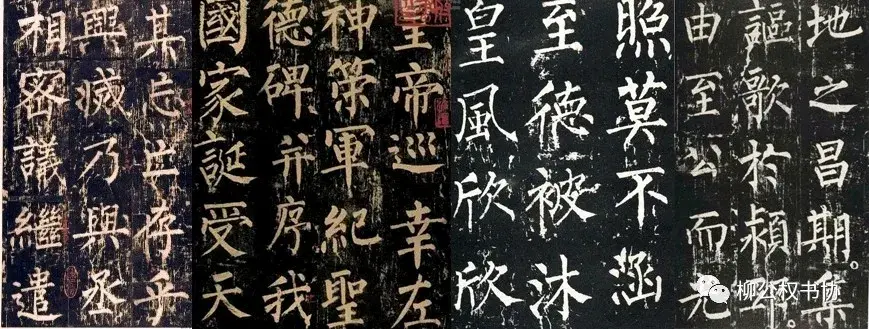 地之昌期集
謳歌於潁
由至公而光
照莫不涵
至德被沐
皇風欣欣
皇帝巡幸左
神策軍紀聖
德碑并序我
國家誕受天
其忘亡存乎
興滅乃與丞
相密議繼遣
柳公权书协